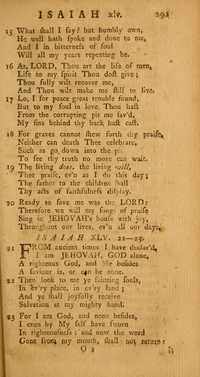 ISAIAH xlv. 291
15 What shall I say? but humbly own,
He well hath spoke and done to me,
And I in bitterness of soul
Will all my years repenting be.
16 As, LORD, Thou art the life of men,
Life to my spirit Thou dost give;
Thou fully wilt recover me,
And Thou wilt make me still to live.
17 Lo, I for peace great trouble found,
But to my soul in love Thou hast
From the corrupting pit me sav'd,
My sins behind thy back hast cast.
18 For graves cannot shew forth thy praise,
Neither can death Thee celebrate,
Such as go down into the pit
To see thy truth no more can wait.
19 The living shall, the living will,
Thee praise, ev'n as I do this day;
The father to the children shall
Thy acts of faithfulness display.
20 Ready to save me was the LORD;
Therefore will my songs of praise
Sing in JEHOVAH's house with joy,
Throughout our lives, ev'n all our days.
ISAIAH XLV. 21—25.
21 FROM ancient times I have declar'd,
I am JEHOVAH, GOD alone,
A righteous God, and Me besides
A Saviour is, or can be none.
22 Then look to me ye fainting souls,
In ev'ry place, in ev'ry land;
And ye shall joyfully receive
Salvation at my mighty hand.
23 For I am God, and none besides,
I even by My self have sworn
In righteousness; and now the word
Gone from my mouth, shall not return:
O 2